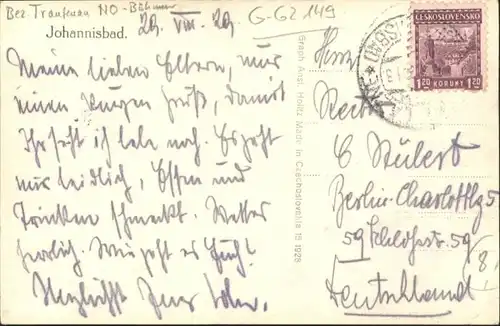 Bez. Trautenau NO-Böhmen
29. VIII. 29. G-GZ 149
Johannisbad.
Meine lieben Eltern, nur
einen kurzen Gruß, damit
Ihr seht ich lebe noch. Es geht
mir leidlich, Essen und
Trinken schmeckt. Wetter
herrlich. Wie geht es Euch?
Herzlichst Euer
Graph. Anst. Hollitz Made in Czechoslovakia 18 1928
ČESKOSLOVENSKO
1.20 KORUNY 1.20
Herrn
C Stülert
Berlin-Charlottbg 5
59 Schloßstr. 59
Deutschland
8.